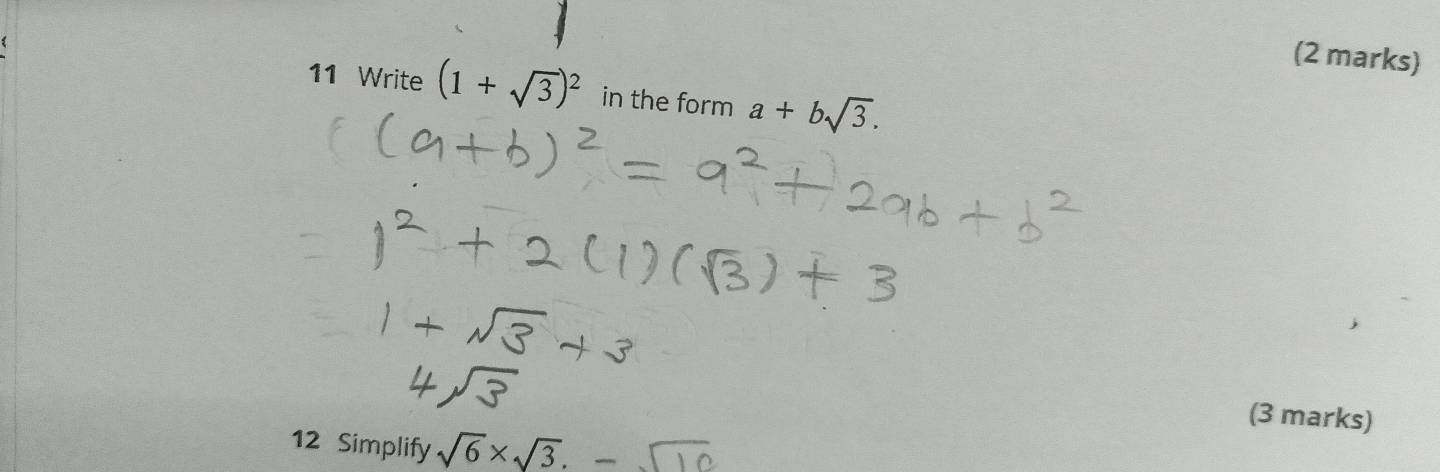 (2 marks)
11 Write (1 + √3)² in the form a + b√3.
(a+b)² = a² + 2ab + b²
= 1² + 2(1)(√3) + 3
1 + √3 + 3
4√3
(3 marks)
12 Simplify √6 × √3. –